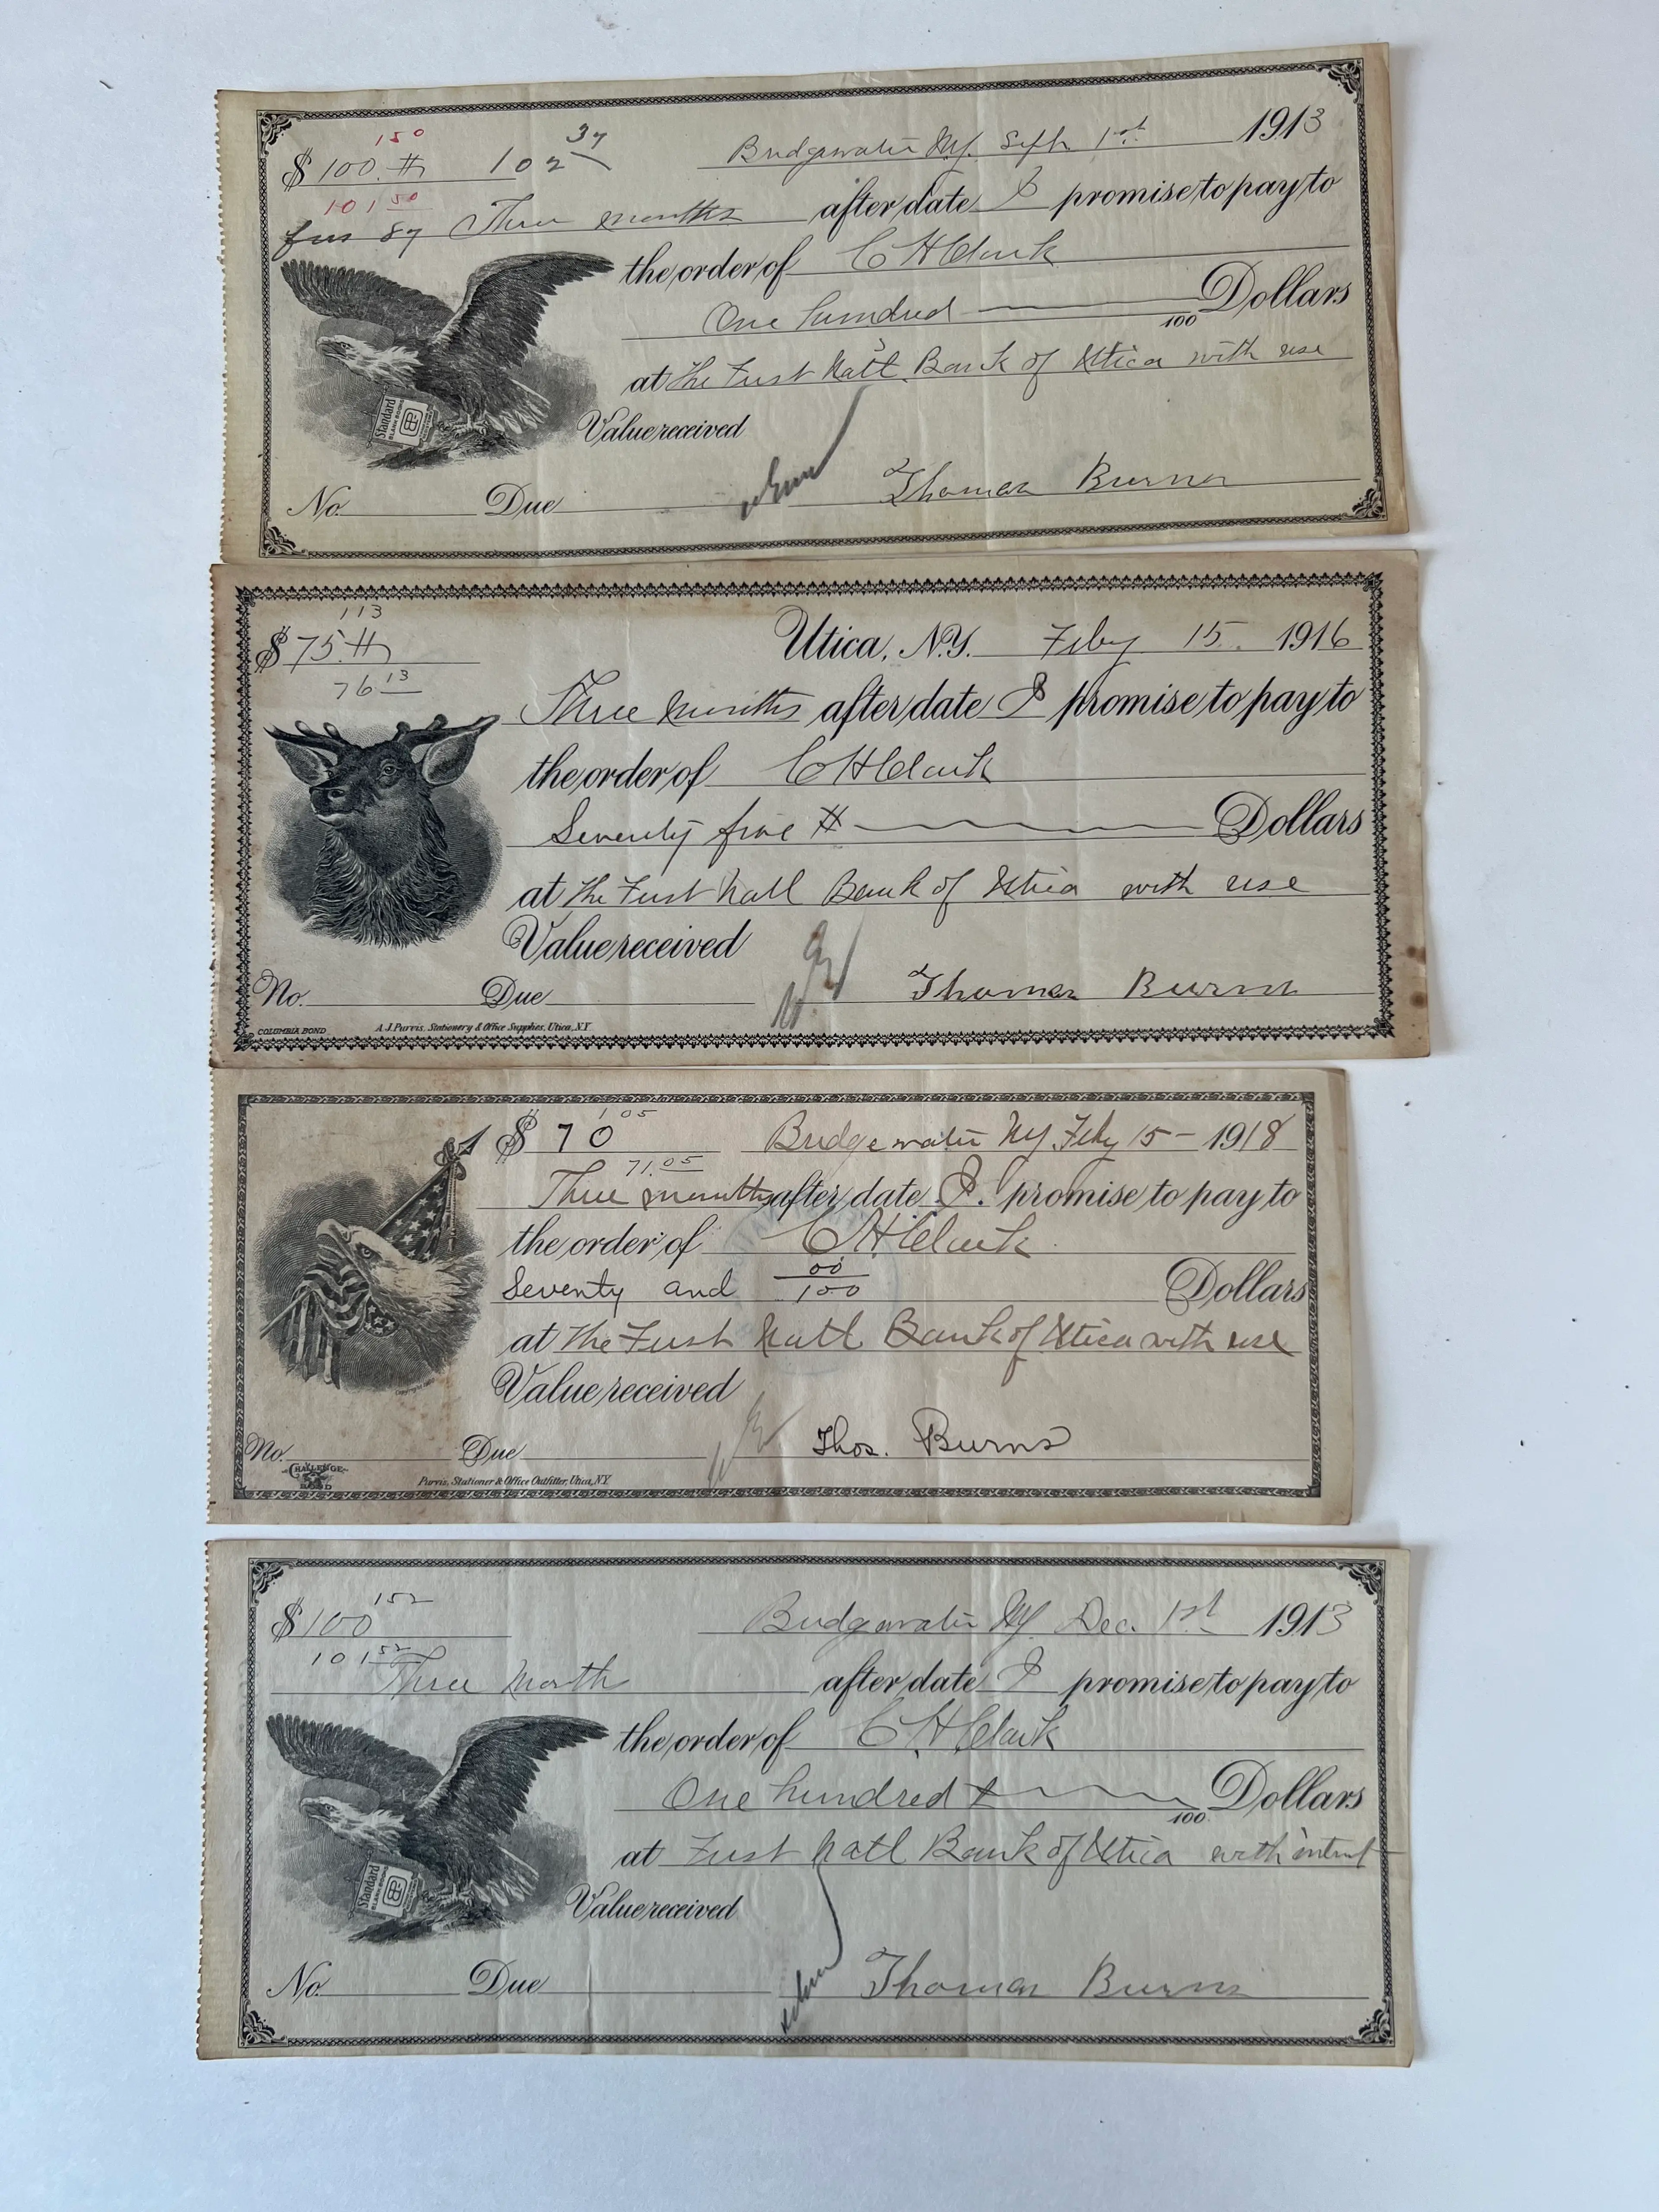 150
$ 100. 102 37
Bridgewater NY. Sept 1st 1913
101 50
87 Three months after date I promise to pay to
the order of C H Clark
One hundred 100 Dollars
at The First Natl. Bank of Utica with use
Standard
Value received
Thomas Burns
No. Due
113
$ 75
Utica, N.Y. Feby 15. 1916
76 13
Three months after date I promise to pay to
the order of C H Clark
Seventy five Dollars
at The First Natl Bank of Utica with use
Value received
No. Due Thomas Burns
COLUMBIA BOND A. J. Purvis, Stationery & Office Supplies, Utica, N.Y.
1 05
$ 70 Bridgewater NY. Feby 15 - 1918
71.05
Three months after date I. promise to pay to
the order of C. H Clark
Seventy and 00/100 Dollars
at The First Natl Bank of Utica with use
Value received
Thos. Burns
No. Due
CHALLENGE BOND Purvis, Stationer & Office Outfitter, Utica, N.Y.
152
$ 100 Bridgewater NY Dec. 1st 1913
101 52
Three Month after date I promise to pay to
the order of C. H Clark
One hundred 100 Dollars
at First Natl Bank of Utica with
Standard
Value received
No. Due Thomas Burns